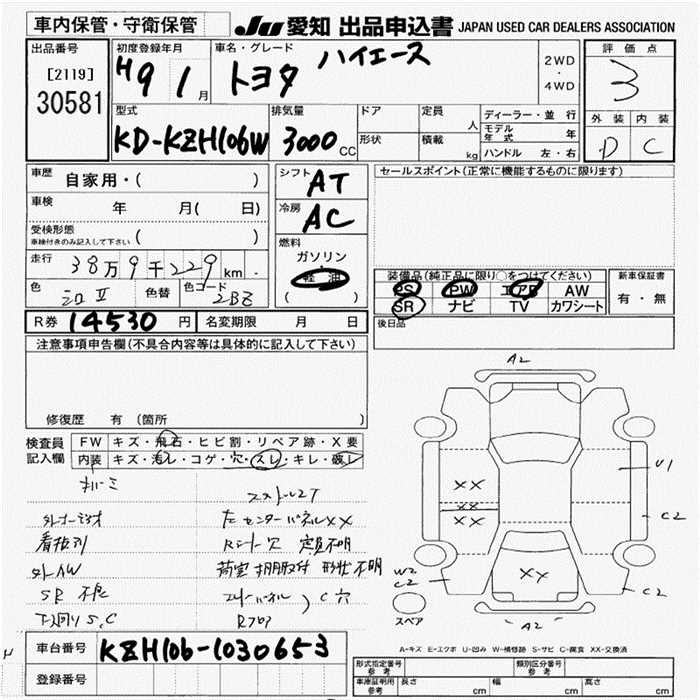 車内保管・守衛保管
JU 愛知 出品申込書 JAPAN USED CAR DEALERS ASSOCIATION
出品番号
[2119]
30581
初度登録年月
H9 1月
車名・グレード
トヨタ ハイエース
2WD
・
4WD
評価点
3
外装 内装
D C
型式
KD-KZH106W
排気量
3000cc
ドア
形状
定員 人
積載 kg
ディーラー・並行
モデル年式 年
ハンドル 左・右
車歴 自家用・( )
車検 年 月( 日)
受検形態
車検付きのみ記入して下さい ( )
走行 38万9千229km
色 シロⅡ 色替 色コード 2BZ
シフト AT
冷房 AC
燃料
ガソリン
軽油
( )
セールスポイント(正常に機能するものに限ります)
装備品(純正品に限り○をつけてください)
PS PW エアB AW
SR ナビ TV カワシート
新車保証書
有・無
後日品
R券 14530円 名変期限 月 日
注意事項申告欄(不具合内容等は具体的に記入して下さい)
修復歴 有 (箇所 )
検査員記入欄
FW キズ・飛石・ヒビ割・リペア跡・X要
内装 キズ・汚レ・コゲ・穴・スレ・キレ・破レ
看板剥
外AW
SR不良
下廻りS,C
左センターパネルXX
Rシート穴 定員不明
荷室棚取付 形状不明
C穴
Rフロア
A2
U1
XX
XX
XX
C2
XX
W2
C2
C2
A2
スペア
A-キズ E-エクボ U-凹み W-補修跡 S-サビ C-腐食 XX-交換済
車台番号 KZH106-1030653
登録番号
形式指定番号
参考
類別区分番号
参考
車庫証明用
参考
長さ cm 幅 cm 高さ cm